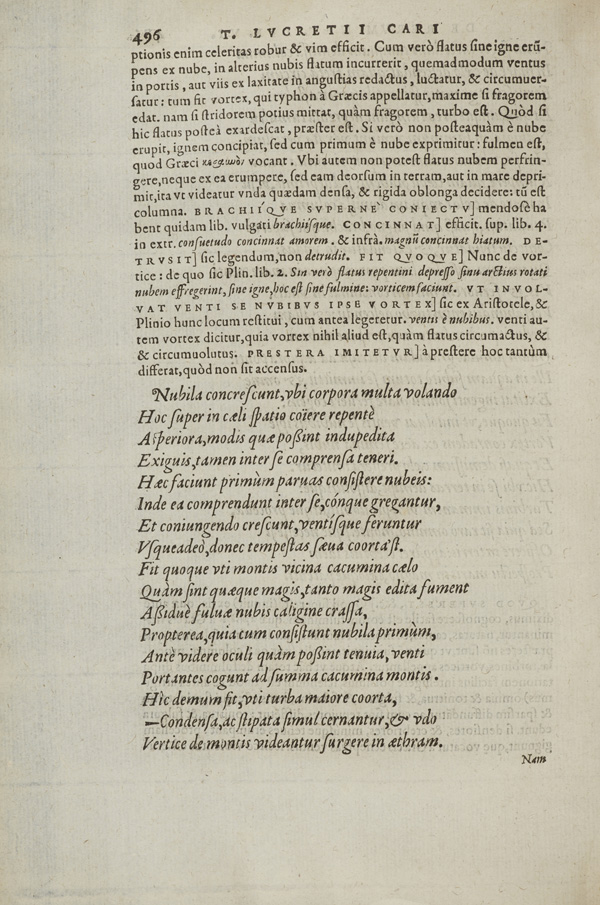 496 T. LVCRETII CARI
ptionis enim celeritas robur & vim efficit. Cum verò flatus sine igne erũ-
pens ex nube, in alterius nubis flatum incurrerit, quemadmodum ventus
in portis, aut viis ex laxitate in angustias redactus, luctatur, & circumuer-
satur: tum fit vortex, qui typhon à Græcis appellatur, maxime si fragorem
edat. nam si stridorem potius mittat, quàm fragorem, turbo est. Quòd si
hic flatus posteà exardescat, præster est. Si verò non posteaquàm è nube
erupit, ignem concipiat, sed cum primum è nube exprimitur: fulmen est,
quod Græci vocant. Vbi autem non potest flatus nubem perfrin-
gere, neque ex ea erumpere, sed eam deorsum in terram, aut in mare depri-
mit, ita vt videatur vnda quædam densa, & rigida oblonga decidere: tũ est
columna. BRACHIÍQVE SVPERNE CONIECTV] mendosè ha
bent quidam lib. vulgati brachiisque. CONCINNAT] efficit. sup. lib. 4.
in extr. consuetudo concinnat amorem. & infrà. magnũ concinnat hiatum. DE-
TRVSIT] sic legendum, non detrudit. FIT QVOQVE] Nunc de vor-
tice: de quo sic Plin. lib. 2. Sin verò flatus repentini depresso sinu arctius rotati
nubem effregerint, sine igne, hoc est sine fulmine: vorticem faciunt. VT INVOL-
VAT VENTI SE NVBIBVS IPSE VORTEX] sic ex Aristotele, &
Plinio hunc locum restitui, cum antea legeretur. ventis è nubibus. venti au-
tem vortex dicitur, quia vortex nihil aliud est, quàm flatus circumactus, &
& circumuolutus. PRESTERA IMITETVR] à prestere hoc tantùm
differat, quòd non sit accensus.
Nubila concrescunt, vbi corpora multa volando
Hoc super in cæli spatio coïere repentè
Asperiora, modis quæ possint indupedita
Exiguis, tamen inter se comprensa teneri.
Hæc faciunt primùm paruas consistere nubeis:
Inde ea comprendunt inter se, cónque gregantur,
Et coniungendo crescunt, ventísque feruntur
Vsqueadeò, donec tempestas sæua coorta'st.
Fit quoque vti montis vicina cacumina cælo
Quàm sint quæque magis, tanto magis edita fument
Assiduè fuluæ nubis caligine crassa,
Propterea, quia cum consistunt nubila primùm,
Antè videre oculi quàm possint tenuia, venti
Portantes cogunt ad summa cacumina montis.
Hìc demum fit, vti turba maiore coorta,
—Condensa, ac stipata simul cernantur, & vdo
Vertice de montis videantur surgere in æthram.
Nam